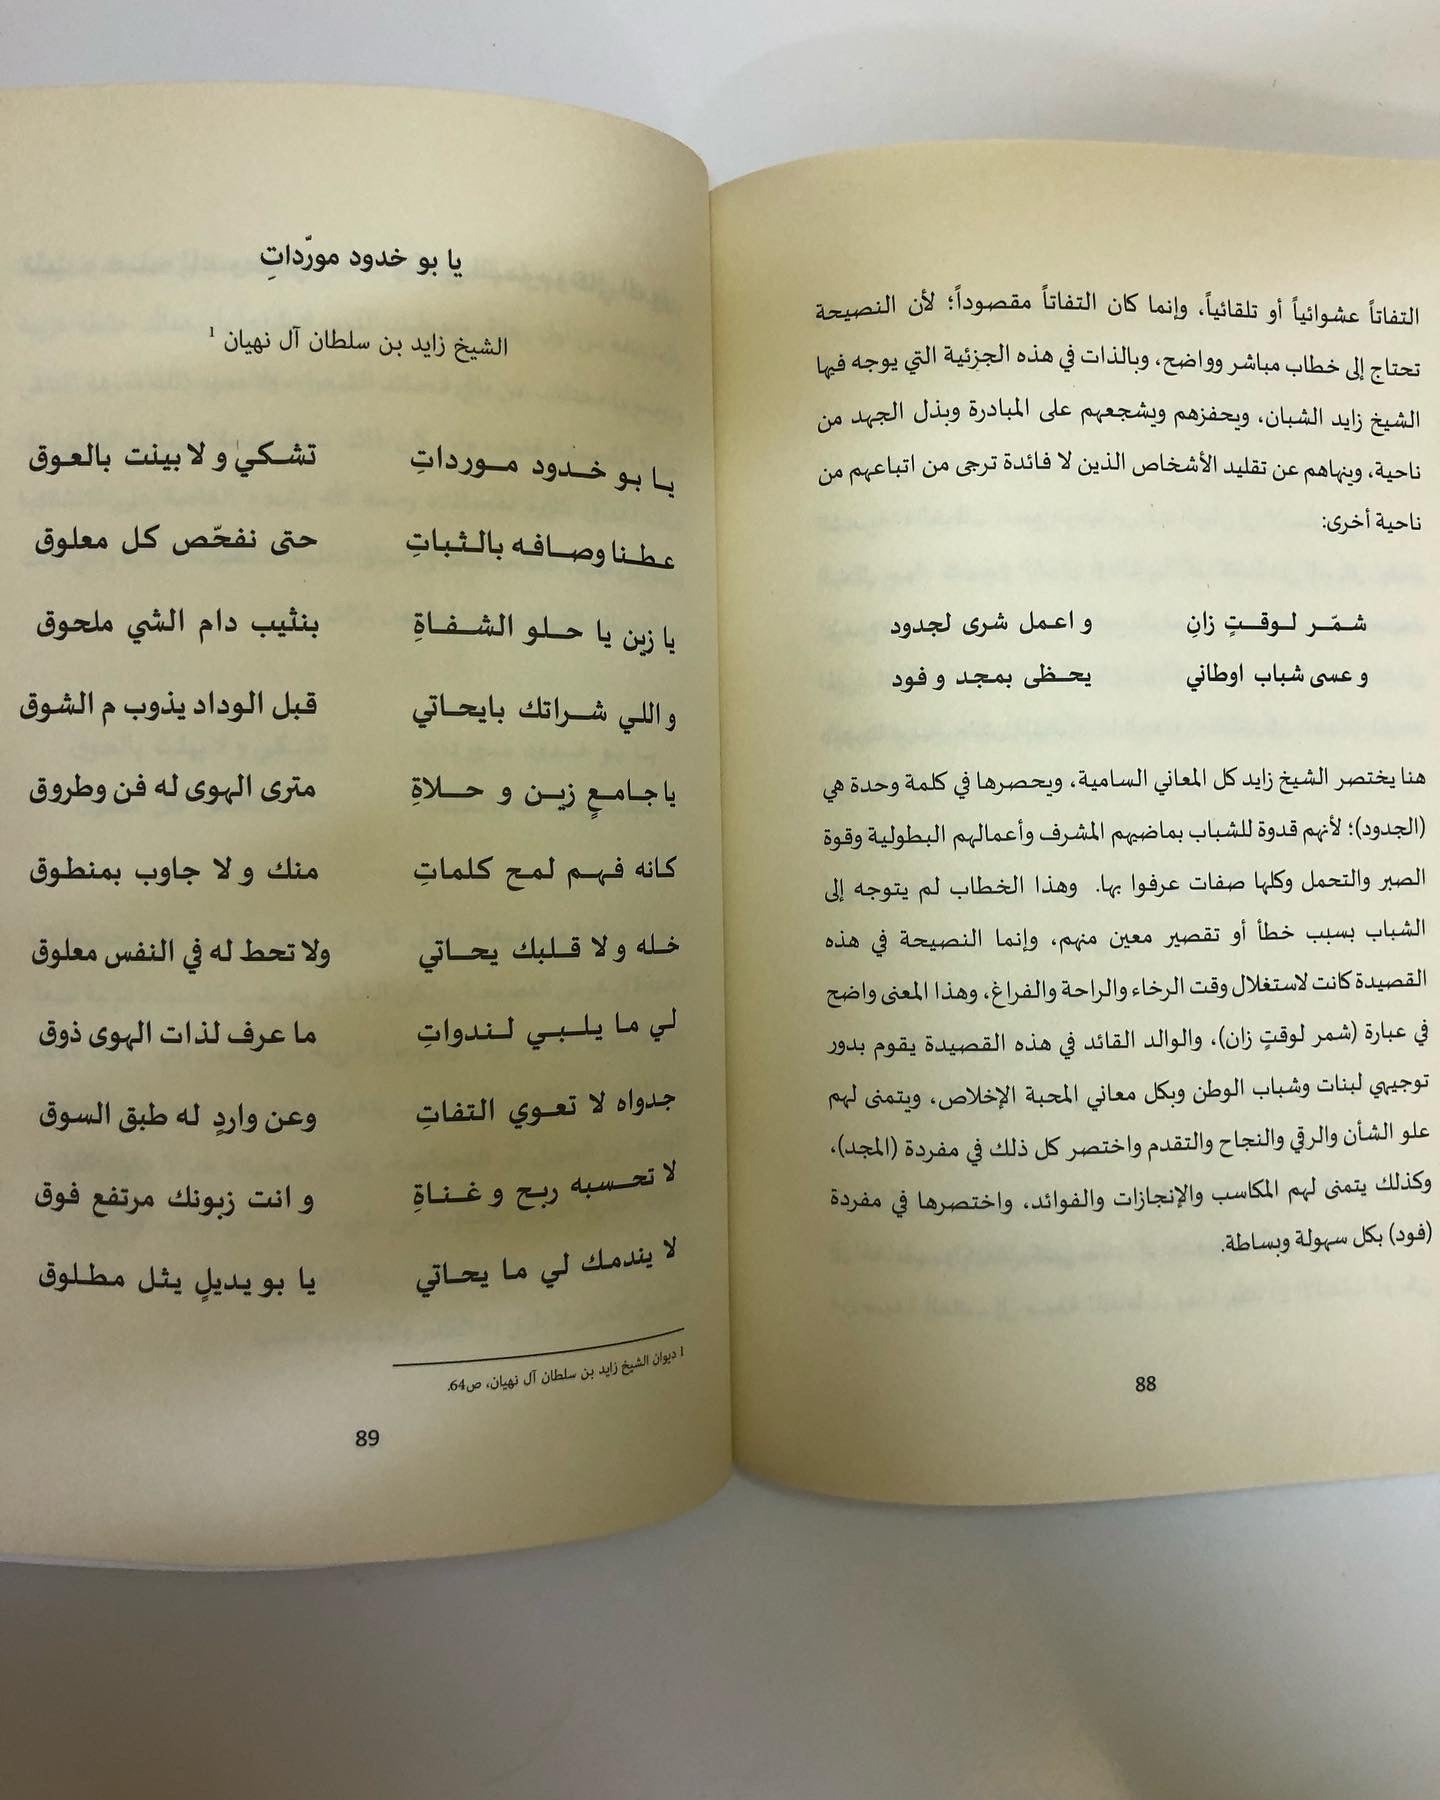 التفاتاً عشوائياً أو تلقائياً، وإنما كان التفاتاً مقصوداً؛ لأن النصيحة
تحتاج إلى خطاب مباشر وواضح، وبالذات في هذه الجزئية التي يوجه فيها
الشيخ زايد الشبان، ويحفزهم ويشجعهم على المبادرة وبذل الجهد من
ناحية، وينهاهم عن تقليد الأشخاص الذين لا فائدة ترجى من اتباعهم من
ناحية أخرى:
شمّر لوقتٍ زانِ و اعمل شرى لجدود
و عسى شباب اوطاني يحظى بمجد و فود
هنا يختصر الشيخ زايد كل المعاني السامية، ويحصرها في كلمة وحدة هي
(الجدود)؛ لأنهم قدوة للشباب بماضيهم المشرف وأعمالهم البطولية وقوة
الصبر والتحمل وكلها صفات عرفوا بها. وهذا الخطاب لم يتوجه إلى
الشباب بسبب خطأ أو تقصير معين منهم، وإنما النصيحة في هذه
القصيدة كانت لاستغلال وقت الرخاء والراحة والفراغ، وهذا المعنى واضح
في عبارة (شمر لوقتٍ زان)، والوالد القائد في هذه القصيدة يقوم بدور
توجيهي لبنات وشباب الوطن وبكل معاني المحبة الإخلاص، ويتمنى لهم
علو الشأن والرقي والنجاح والتقدم واختصر كل ذلك في مفردة (المجد)،
وكذلك يتمنى لهم المكاسب والإنجازات والفوائد، واختصرها في مفردة
(فود) بكل سهولة وبساطة.
88
يا بو خدود مورّداتِ
الشيخ زايد بن سلطان آل نهيان 1
يا بو خدود موردات‌ِ تشكي و لا بينت بالعوق
عطنا وصافه بالثباتِ حتى نفحّص كل معلوق
يا زين يا حلو الشفاةِ بنثيب دام الشي ملحوق
و اللي شراتك بايحاتي قبل الوداد يذوب م الشوق
يا جامعٍ زين و حلاةِ مترى الهوى له فن وطروق
كانه فهم لمح كلماتِ منك و لا جاوب بمنطوق
خله و لا قلبك يحاتي ولا تحط له في النفس معلوق
لي ما يلبي لندواتِ ما عرف لذات الهوى ذوق
جدواه لا تعوي التفاتِ وعن واردٍ له طبق السوق
لا تحسبه ربح و غناةِ و انت زبونك مرتفع فوق
لا يندمك لي ما يحاتي يا بو يديلٍ يثل مطلوق
1 ديوان الشيخ زايد بن سلطان آل نهيان، ص64.
89